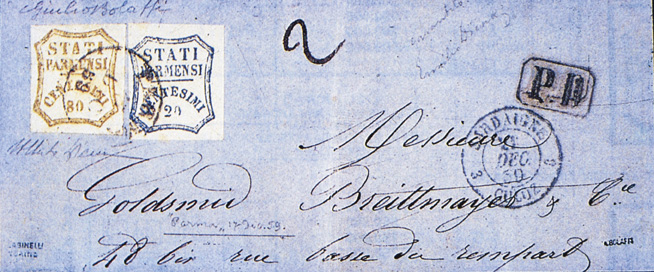 Giulio Bolaffi
STATI
PARMENSI
CENTESIMI
80
STATI
PARMENSI
CENTESIMI
20
2
P.D
SARDAIGNE
DEC.
59
CULOZ
3
Messieurs
Goldsmid Breittmayer & Cie
Parma, 17 Dic. 59.
48 bis rue basse du rempart
A.BOLAFFI